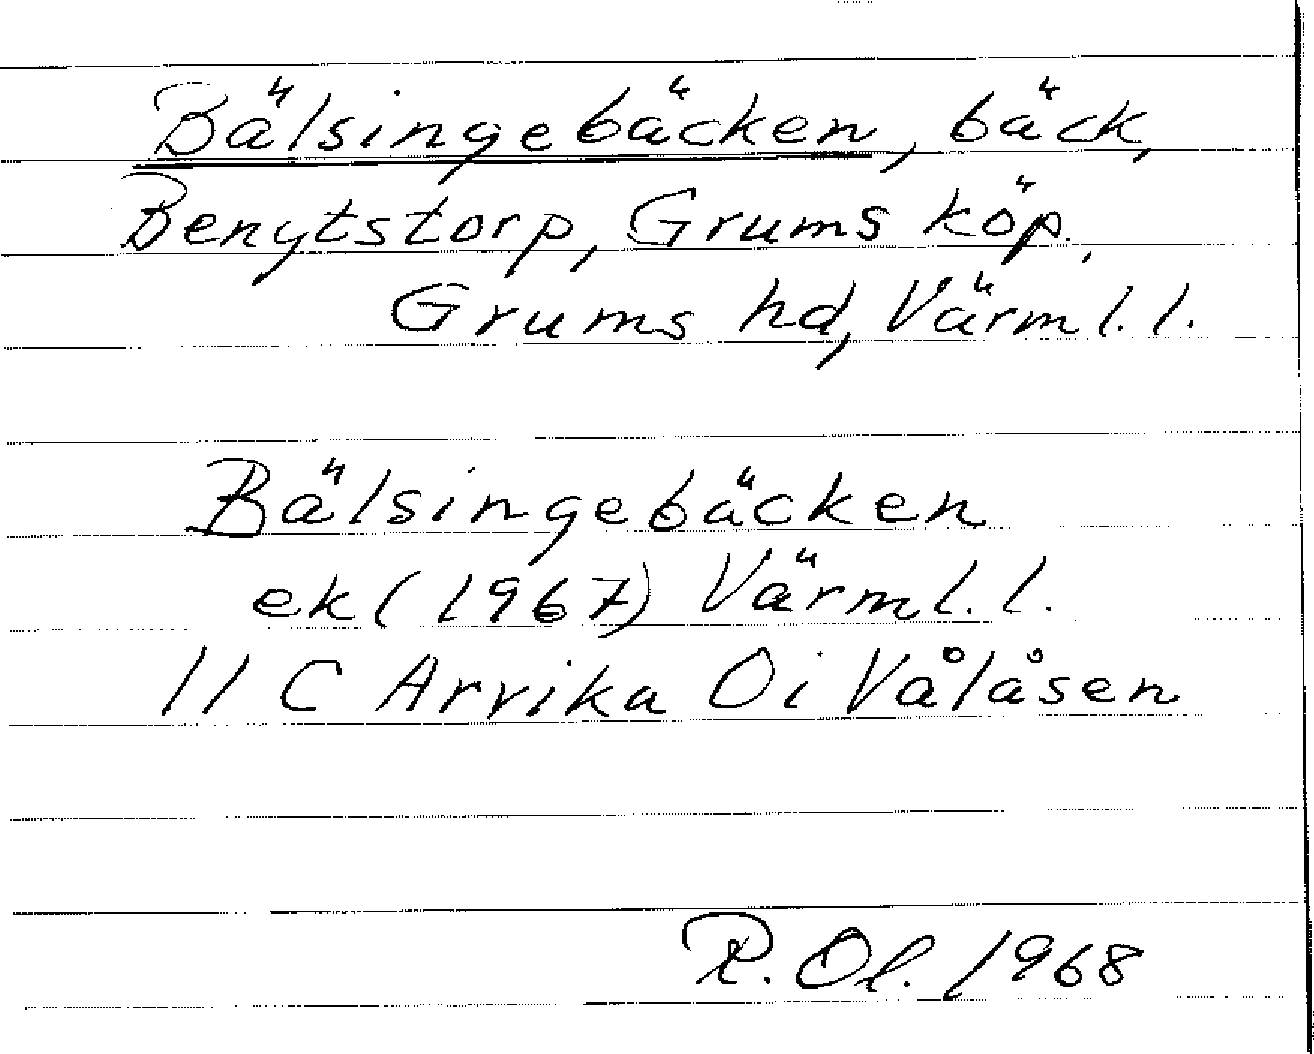 Bälsingebäcken, bäck,
Bengtstorp, Grums köp.,
Grums hd, Värml. l.
Bälsingebäcken
ek (1967) Värml. l.
11 C Arvika Oi Vålåsen
R. Ol. 1968